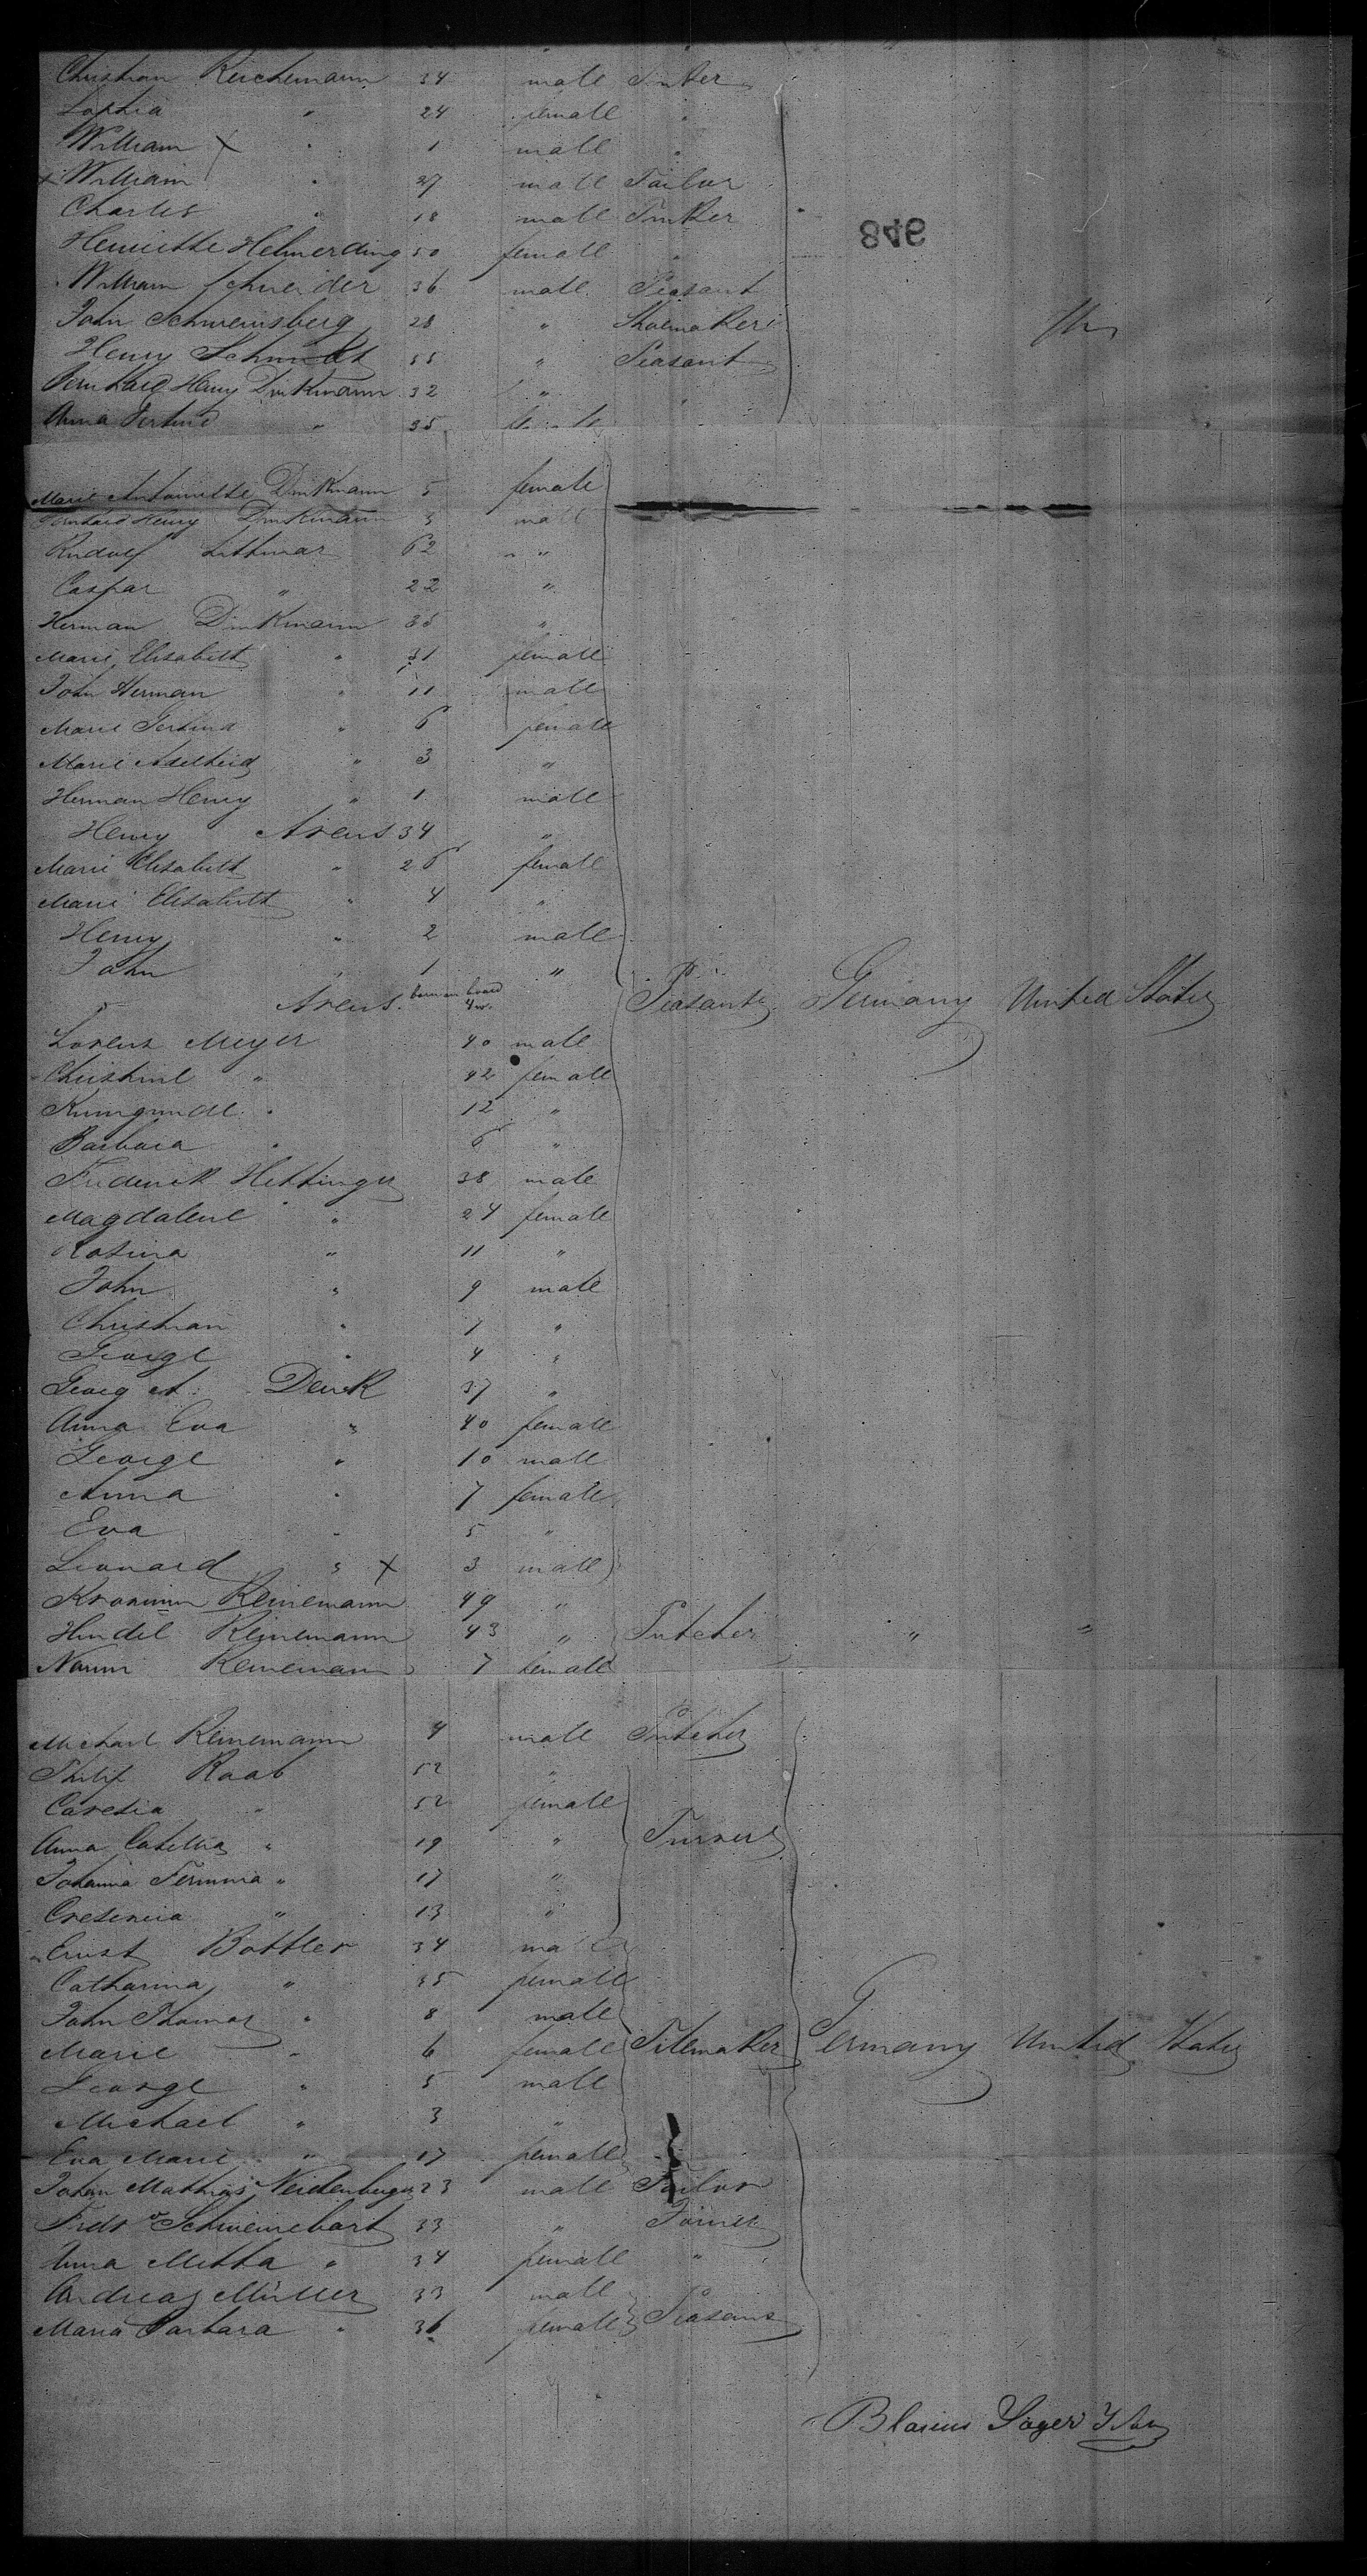 Christian Reichemann 34 male Tinker
Sophia " 24 female "
William X " 1 male "
x William " 27 male Tailor
Charles " 18 male Tinker
Henriette Helmerding 50 female "
846
William Schneider 36 male Peasant
John Schweinsberg 28 " Shoemaker
Henry Schmidt 35 " Peasant
Bernhard Henry Dinkmann 32 " "
Anna Gertrud " 35 female
Marie Antoinette Dinkmann 5 female
Bernhard Henry Dinkmann 3 male
Rudolf Littmar 62 "
Caspar " 22 "
Herman Dinkmann 35 "
Marie Elisabeth " 31 female
John Herman " 11 male
Marie Gertrud " 6 female
Marie Adelheid " 3 "
Herman Henry " 1 male
Henry Arens 34 "
Marie Elisabeth " 26 female
Marie Elisabeth " 4 "
Henry " 2 male
John " 1 "
Arens. born on board
Peasants Germany United States
Lorenz Meyer 40 male
Christine " 42 female
Kunigunde " 12 "
Barbara " 6 "
Frederick Hettinger 38 male
Magdalene " 24 female
Rosina " 11 "
John " 9 male
Christian " 7 "
George " 4 "
Georg A. Denk 37 "
Anna Eva " 40 female
George " 10 male
Anna " 7 female
Eva " 5 "
Leonard " X 3 male
Reinemann 49 "
Hindel Reinemann 43 " Putcher " "
Nanni Reinemann 7 female
Michael Reinemann 4 male Putcher
Philip Raab 52 "
52 female
Anna " 19 " Turner
Johanna " 17 "
Cresencia " 13 "
Ernst Bottler 34 male
Catharina " 35 female
John Thomas " 8 male
Marie " 6 female Tilemaker Germany United States
George " 5 male
Michael " 3 "
Eva Marie " 17 female
Johan Mathias 23 male Tailor
Schweinebart 33 "
Anna " 34 female "
Andreas Müller 33 male
Maria Barbara " 36 female Peasans
Blasius